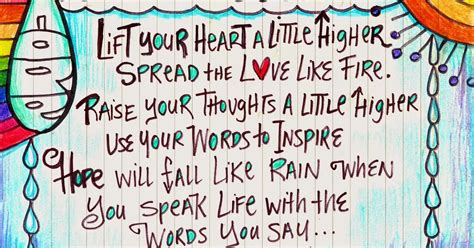 LIFT YOUR HEART A LITTLE HIGHER
SPREAD THE LOVE LIKE FIRE.
RAISE YOUR THOUGHTS A LITTLE HIGHER
USE YOUR WORDS TO INSPIRE
HOPE WILL FALL LIKE RAIN WHEN
YOU SPEAK LIFE WITH THE
WORDS YOU SAY...